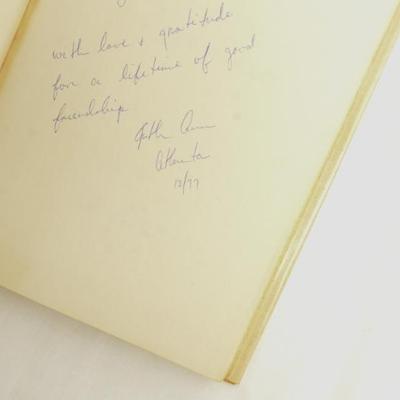 with love + gratitude
for a lifetime of good
friendship
Ann
Atlanta
12/77